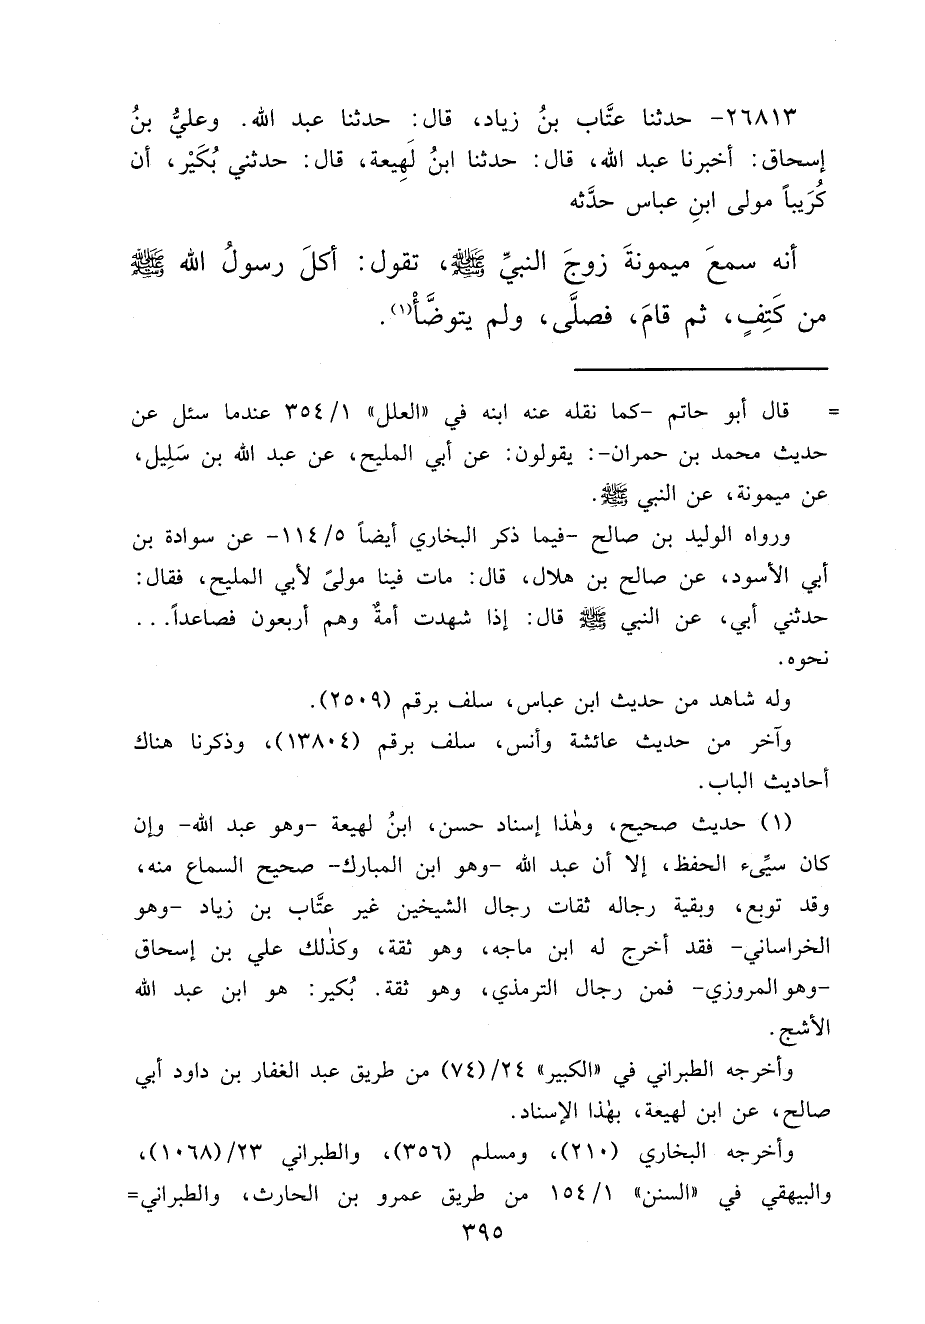 ٢٦٨١٣- حدثنا عتَّاب بنُ زياد، قال: حدثنا عبد الله. وعليُّ بنُ
إسحاق: أخبرنا عبد الله، قال: حدثنا ابنُ لَهِيعة، قال: حدثني بُكَيْر، أن
كُرَيباً مولى ابنِ عباس حدَّثه
أنه سمعَ ميمونةَ زوجَ النبيِّ ﷺ، تقول: أكلَ رسولُ الله ﷺ
من كَتِفٍ، ثم قامَ، فصلَّى، ولم يتوضَّأْ(١).
= قال أبو حاتم -كما نقله عنه ابنه في «العلل» ٣٥٤/١ عندما سئل عن
حديث محمد بن حمران-: يقولون: عن أبي المليح، عن عبد الله بن سَلِيل،
عن ميمونة، عن النبي ﷺ.
ورواه الوليد بن صالح -فيما ذكر البخاري أيضاً ١١٤/٥- عن سوادة بن
أبي الأسود، عن صالح بن هلال، قال: مات فينا مولىً لأبي المليح، فقال:
حدثني أبي، عن النبي ﷺ قال: إذا شهدت أمةٌ وهم أربعون فصاعداً...
نحوه.
وله شاهد من حديث ابن عباس، سلف برقم (٢٥٠٩).
وآخر من حديث عائشة وأنس، سلف برقم (١٣٨٠٤)، وذكرنا هناك
أحاديث الباب.
(١) حديث صحيح، وهٰذا إسناد حسن، ابنُ لهيعة -وهو عبد الله- وإن
كان سيِّىء الحفظ، إلا أن عبد الله -وهو ابن المبارك- صحيح السماع منه،
وقد توبع، وبقية رجاله ثقات رجال الشيخين غير عتَّاب بن زياد -وهو
الخراساني- فقد أخرج له ابن ماجه، وهو ثقة، وكذٰلك علي بن إسحاق
-وهو المروزي- فمن رجال الترمذي، وهو ثقة. بُكير: هو ابن عبد الله
الأشج.
وأخرجه الطبراني في «الكبير» ٢٤/(٧٤) من طريق عبد الغفار بن داود أبي
صالح، عن ابن لهيعة، بهٰذا الإسناد.
وأخرجه البخاري (٢١٠)، ومسلم (٣٥٦)، والطبراني ٢٣/(١٠٦٨)،
والبيهقي في «السنن» ١٥٤/١ من طريق عمرو بن الحارث، والطبراني=
٣٩٥